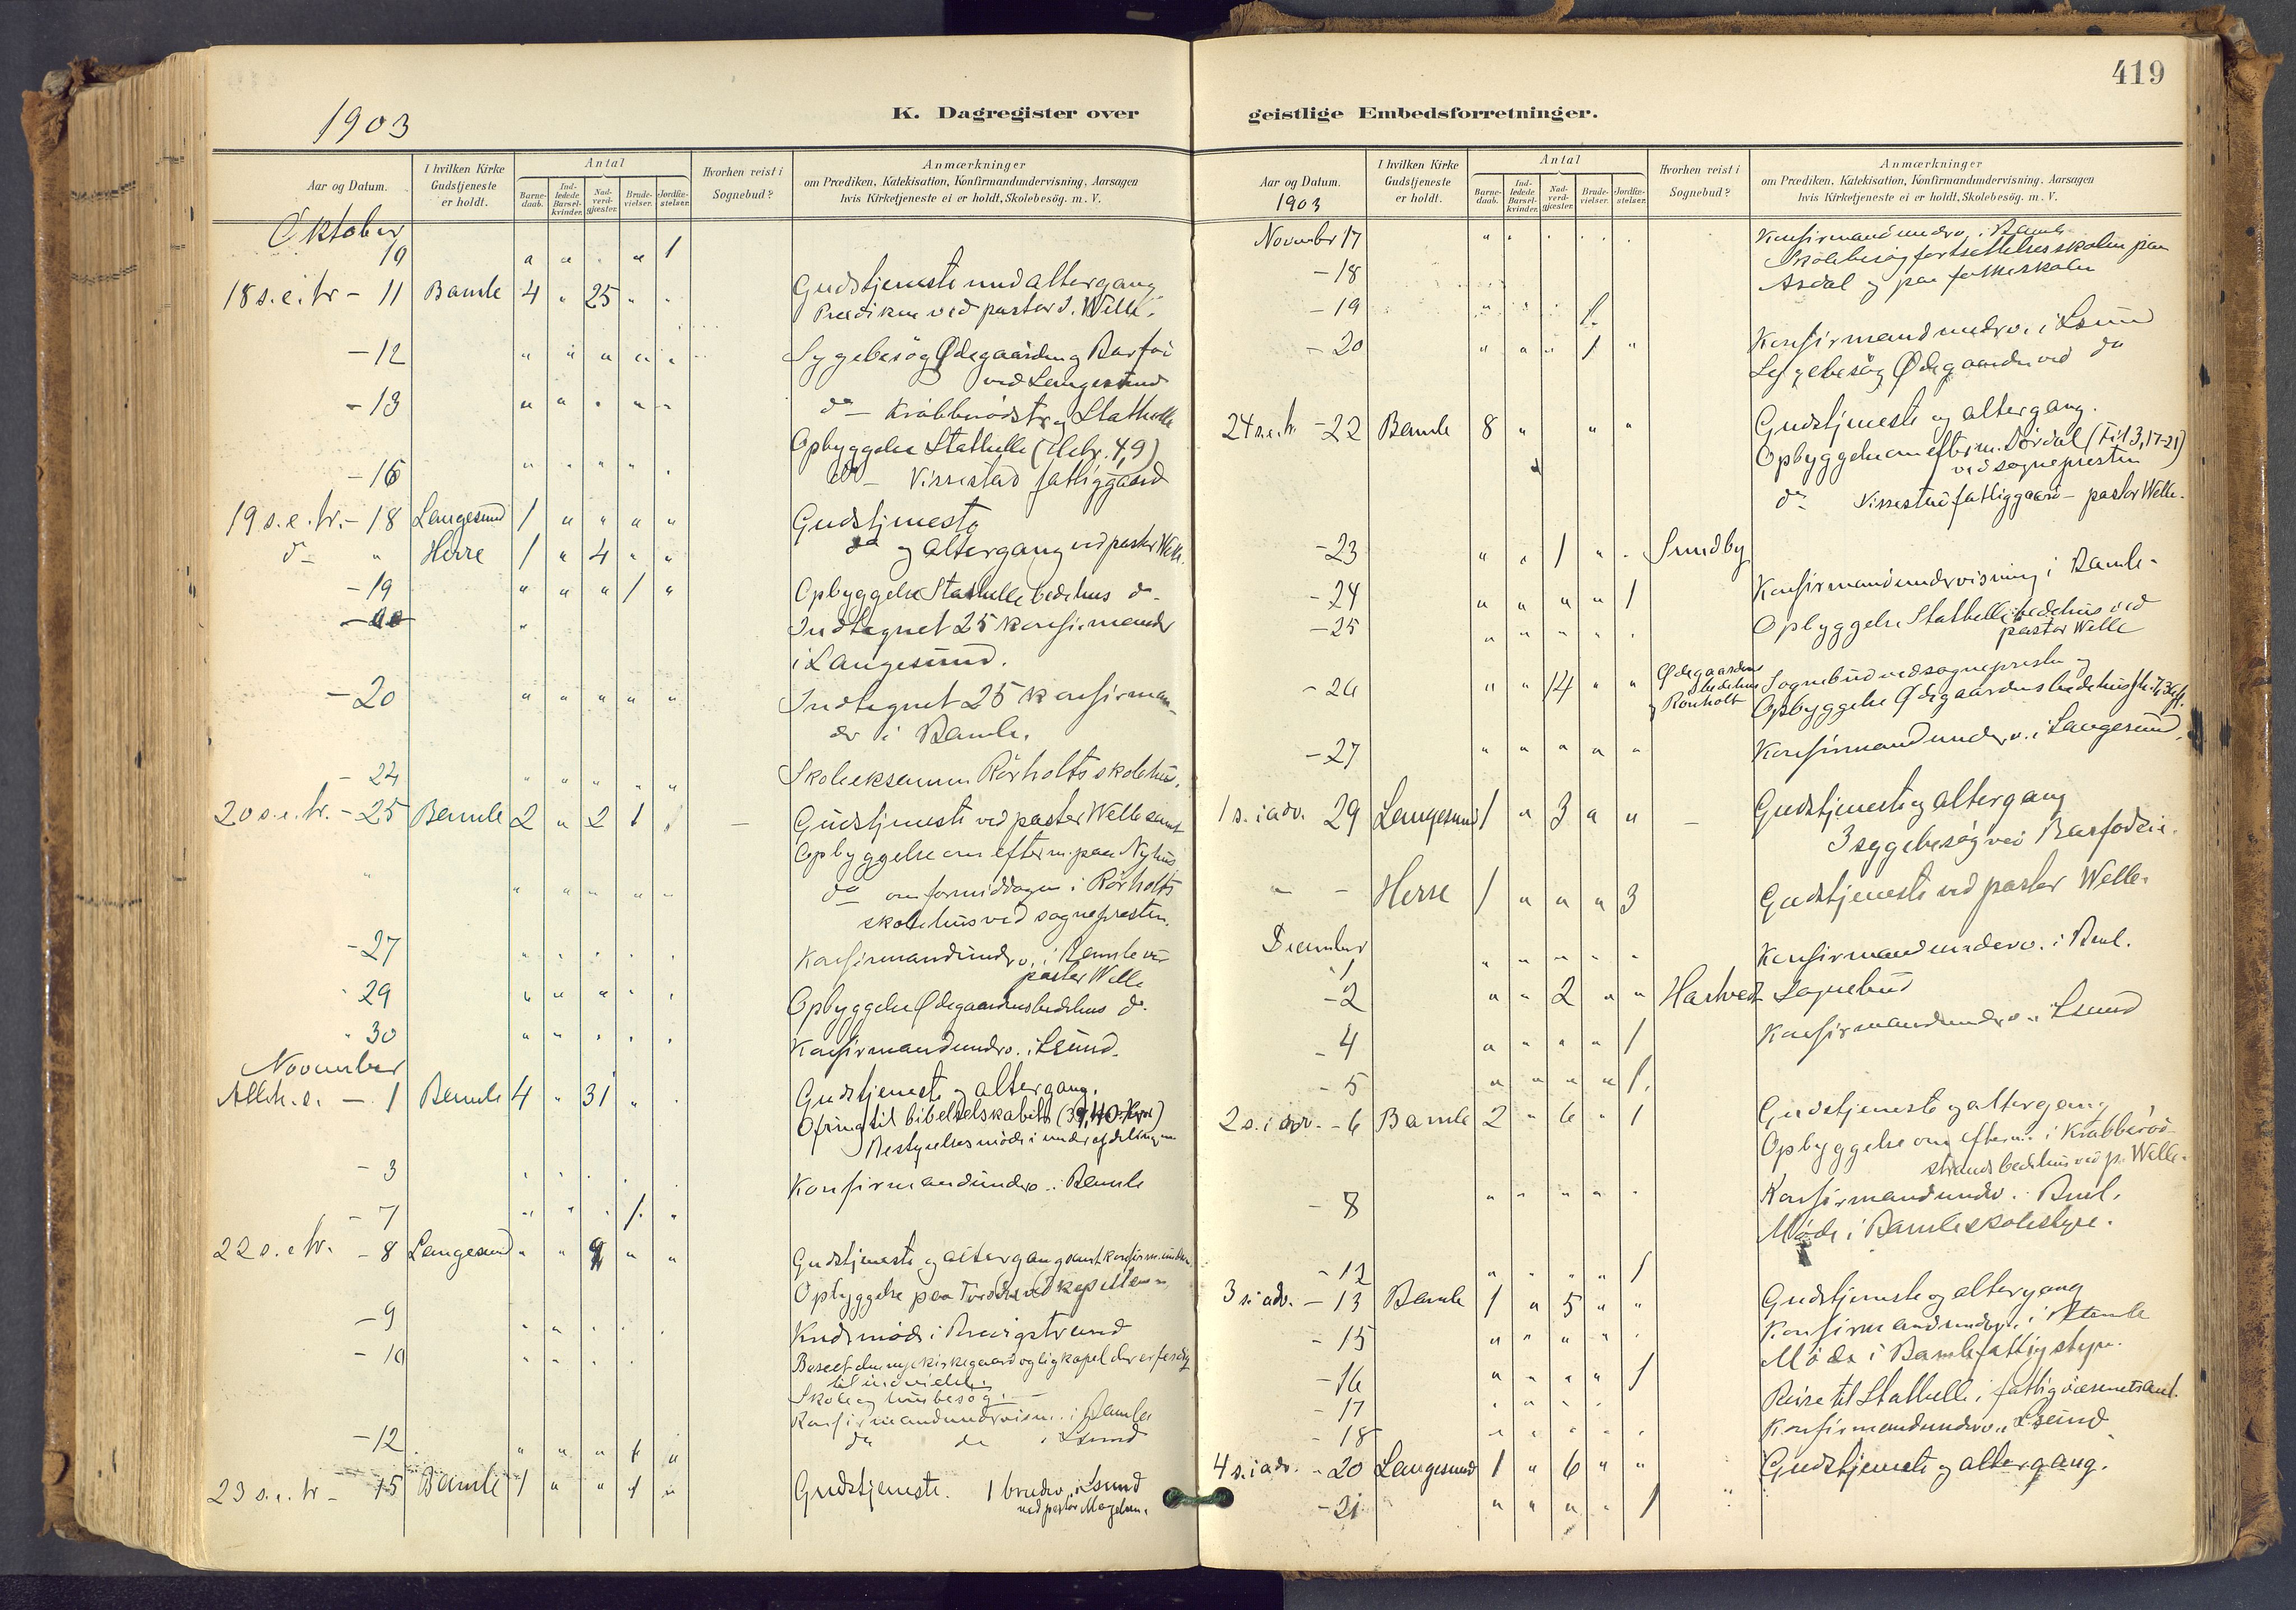 1903
K. Dagregister over
Aar og Datum.
I hvilken Kirke Gudstjeneste er holdt.
Antal
Barne-daab.
Ind-ledede Barsel-kvinder.
Nad-verd-gjæster.
Brude-vielser.
Jordfæ-stelser.
Hvorhen reist i Sognebud?
Anmærkninger
om Prædiken, Katekisation, Konfirmandundervisning, Aarsagen
hvis Kirketjeneste ei er holdt, Skolebesøg. m. V.
Oktober
10 " " " " 1
18 s. e. tr - 11 Bamle 4 " 25 " " Gudstjeneste med altergang
Prædiken ved pastor S. Welle.
- 12 " " " " " Sygebesøg Ødegaarden og Barfod
ved Langesund
- 13 " " " " " do - Krabberødstr. og Stathelle
Opbyggelse Stathelle (Hebr. 4,9)
- 16 " " " " " do - Vissestad fattiggaard
19 s. e. tr. - 18 Langesund 1 " " " " Gudstjeneste
do " Herre 1 " 4 " " do og altergang ved pastor Welle.
- 19 " " " 1 " Opbyggelse Stathelle bedehus do
Indtegnet 25 konfirmander
i Langesund.
- 20 " " " " " Indtegnet 25 konfirman-
der i Bamle.
- 24 " " " " " Skoleeksamen Rörholts skolehus.
20 s. e. tr. - 25 Bamle 2 " 2 1 " - Gudstjeneste ved pastor Welle samt
Opbyggelse om efterm. paa Nyhus
" " " " " " do om formiddagen i Rörholts
skolehus ved sognepresten.
- 27 " " " " " Konfirmandundv. i Bamle ved
pastor Welle
- 29 " " " " " Opbyggelse Ødegaardens bedehus do
" 30 " " " " " Konfirmandundv. i Lsund.
November
Alleh. s. - 1 Bamle 4 " 31 " " Gudstjeneste og altergang.
Ofring til bibelselskabet (39,40 Kron)
Bestyrelsesmöde i underafdelingen
- 3 " " " " " Konfirmandundv. i Bamle
- 7 " " " 1 "
22 s. e. tr. - 8 Langesund " " " " Gudstjeneste og altergang samt konfirm.
Opbyggelse paa
- 9 " " " " "
- 10 " " " " Beseet den nye kirkegaard og ligkapel der er færdig
til indvielse.
Skole og husbesøg.
Konfirmandundervisn. i Bamle
- 12 " " " 1 " do do i Lsund
23 s. e. tr - 15 Bamle 1 " " 1 " Gudstjeneste. 1 brudev. i Lsund
ved pastor
419
geistlige Embedsforretninger.
Aar og Datum.
1903
I hvilken Kirke Gudstjeneste er holdt.
Antal
Barne-daab.
Ind-ledede Barsel-kvinder.
Nad-verd-gjæster.
Brude-vielser.
Jordfæ-stelser.
Hvorhen reist i Sognebud?
Anmærkninger
om Prædiken, Katekisation, Konfirmandundervisning, Aarsagen
hvis Kirketjeneste ei er holdt, Skolebesøg. m. V.
November 17 " " " " " Konfirmandundv. i Bamle
Skolebesøg fortsættelsesskolen paa
- 18 Asdal og paa folkeskolen
- 19 " " " 1
- 20 " " " 1 " Konfirmandundv. i Lsund
Sygebesøg Ødegaarden ved do
24 s. e. tr. - 22 Bamle 8 " " " Gudstjeneste og altergang.
Opbyggelse om efterm. Dördal (Fil 3,17-21)
ved sognepresten
do Vissestad fattiggaard - pastor Welle.
- 23 " " 1 " " Sundby
- 24 " " " " 1 Konfirmandundervisning i Bamle.
- 25 " " " " " Opbyggelse Stathelle bedehus ved
pastor Welle
- 26 " " 14 " " Ødegaardens bedehus og Rönholt Sognebud ved sognepresten og
Opbyggelse Ødegaardens bedehus
- 27 " " " " " Konfirmandundv. i Langesund.
1 s. i adv. 29 Langesund 1 " 3 " " - Gudstjeneste og altergang
3 sygebesøg ved
" - Herre 1 " " " 3 Gudstjeneste ved pastor Welle.
December
1 " " " " " Konfirmandunderv. i Baml.
- 2 " " 2 " " Hastvedt Sognebud
- 4 " " " " 1 Konfirmandundv. i Lsund
- 5 " " " " 1.
2 s. i adv. - 6 Bamle 2 " 6 " 1 Gudstjeneste og altergang
Opbyggelse om efterm. i Krabberöd
strands bedehus ved p. Welle.
- 8 " " " " " Konfirmandundv. i Baml.
Möde i Bamle skolestyre.
- 12 " " " " 1
3 s. i adv. - 13 Bamle 1 " 5 " " Gudstjeneste og altergang
- 15 " " " " " Konfirmandundv. i Bamle
Möde i Bamle fattigstyre.
- 16 " " " " 1
- 17 " " " " Reise til Stathelle i fattigvæsenets anl.
- 18 " " " " " Konfirmandundv. i Lsund
4 s. i adv. - 20 Langesund 1 " 6 " " Gudstjeneste og altergang.
- 21 " " " " 1